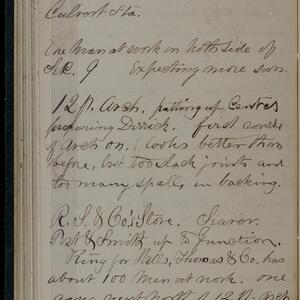 Culvert Sta.
One man at work on north side of
Sec. 9 Expecting more soon.
12 ft. Arch. putting up Center
preparing Derrick. first course
of Arch on, looks better than
before, but too slack joints and
too many spalls in backing.
R. S. & Co's Store.
Post & Smith up to Junction.
King for Wells, Thomas & Co. has
about 100 men at work. one
gang next north of 12 ft.